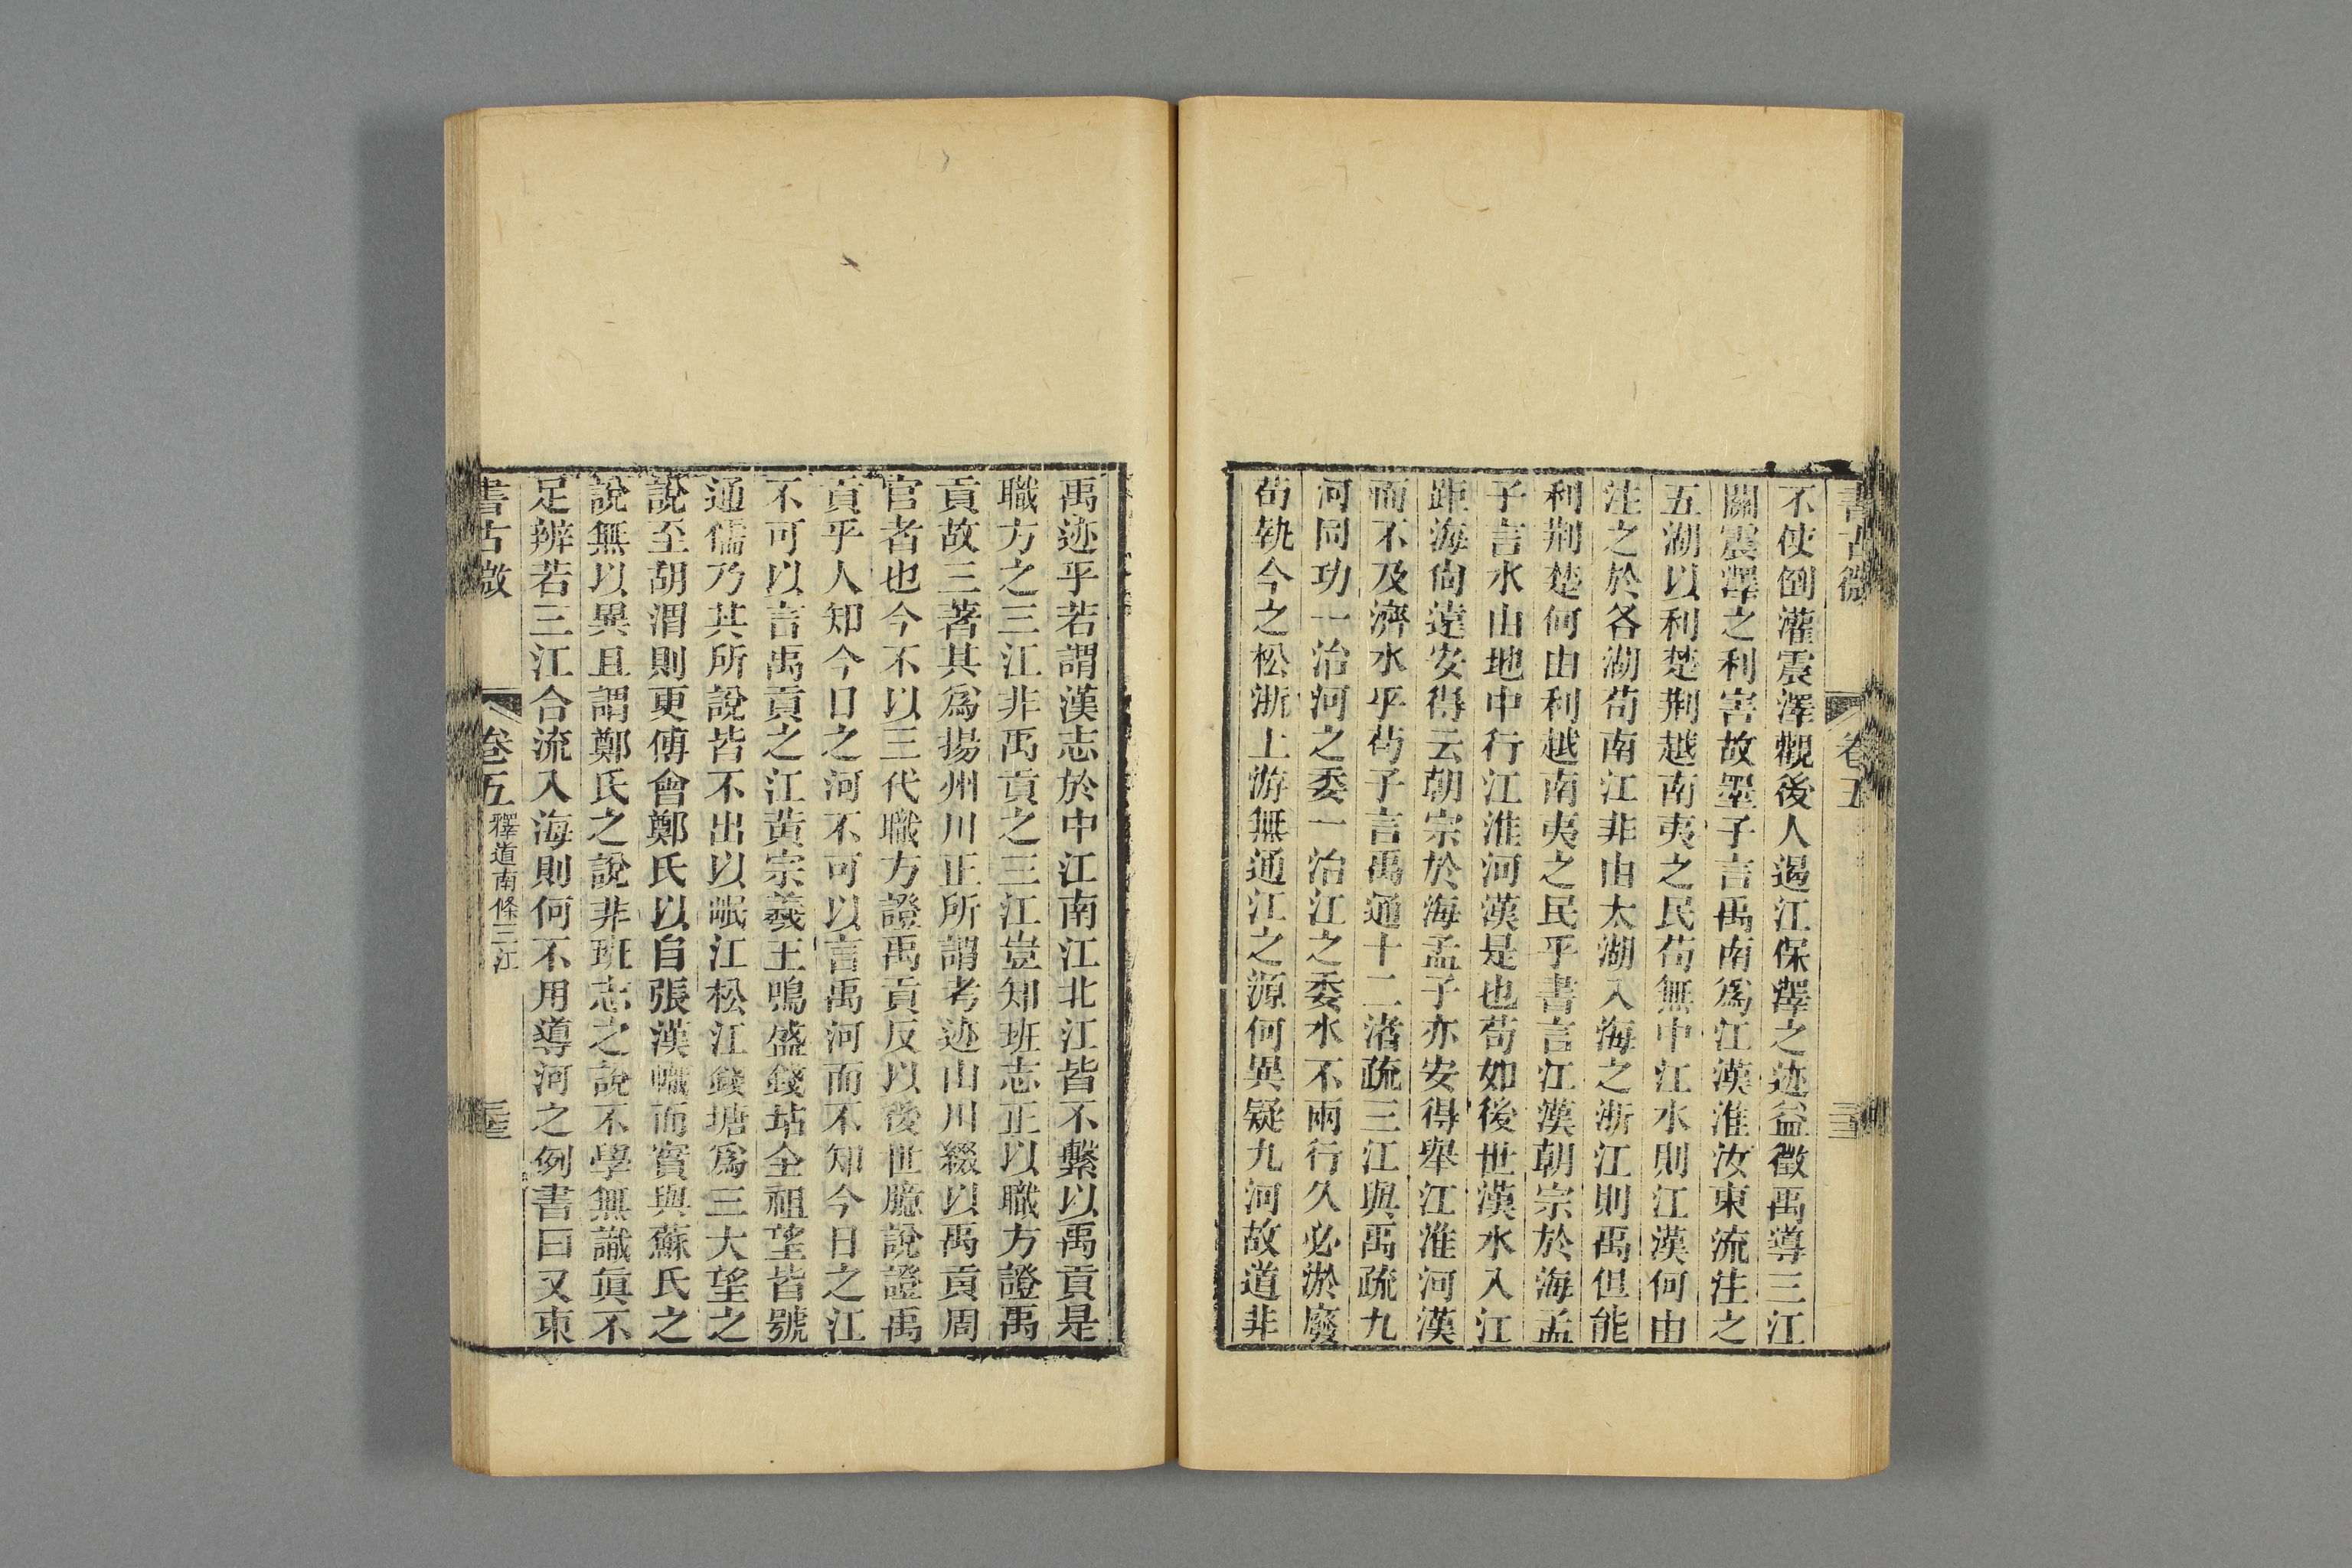 書古微
卷五
不使倒灌震澤觀後人遏江保澤之迹益徵禹導三江
關震澤之利害故墨子言禹南爲江漢淮汝東流注之
五湖以利楚荆越南夷之民苟無中江水則江漢何由
注之於各湖苟南江非由太湖入海之浙江則禹但能
利荆楚何由利越南夷之民乎書言江漢朝宗於海孟
子言水由地中行江淮河漢是也苟如後世漢水入江
距海尙遠安得云朝宗於海孟子亦安得舉江淮河漢
而不及濟水乎苟子言禹通十二渚疏三江與禹疏九
河同功一治河之委一治江之委水不兩行久必淤廢
苟執今之松浙上游無通江之源何異疑九河故道非
禹迹乎若謂漢志於中江南江北江皆不繫以禹貢是
職方之三江非禹貢之三江豈知班志正以職方證禹
貢故三著其爲揚州川正所謂考迹山川綴以禹貢周
官者也今不以三代職方證禹貢反以後世臆說證禹
貢乎人知今日之河不可以言禹河而不知今日之江
不可以言禹貢之江黃宗羲王鳴盛錢坫全祖望皆號
通儒乃其所說皆不出以岷江松江錢塘爲三大望之
說至胡渭則更傅會鄭氏以自張漢幟而實與蘇氏之
說無以異且謂鄭氏之說非班志之說不學無識眞不
足辨若三江合流入海則何不用導河之例書曰又東
書古微
卷五
釋道南條三江